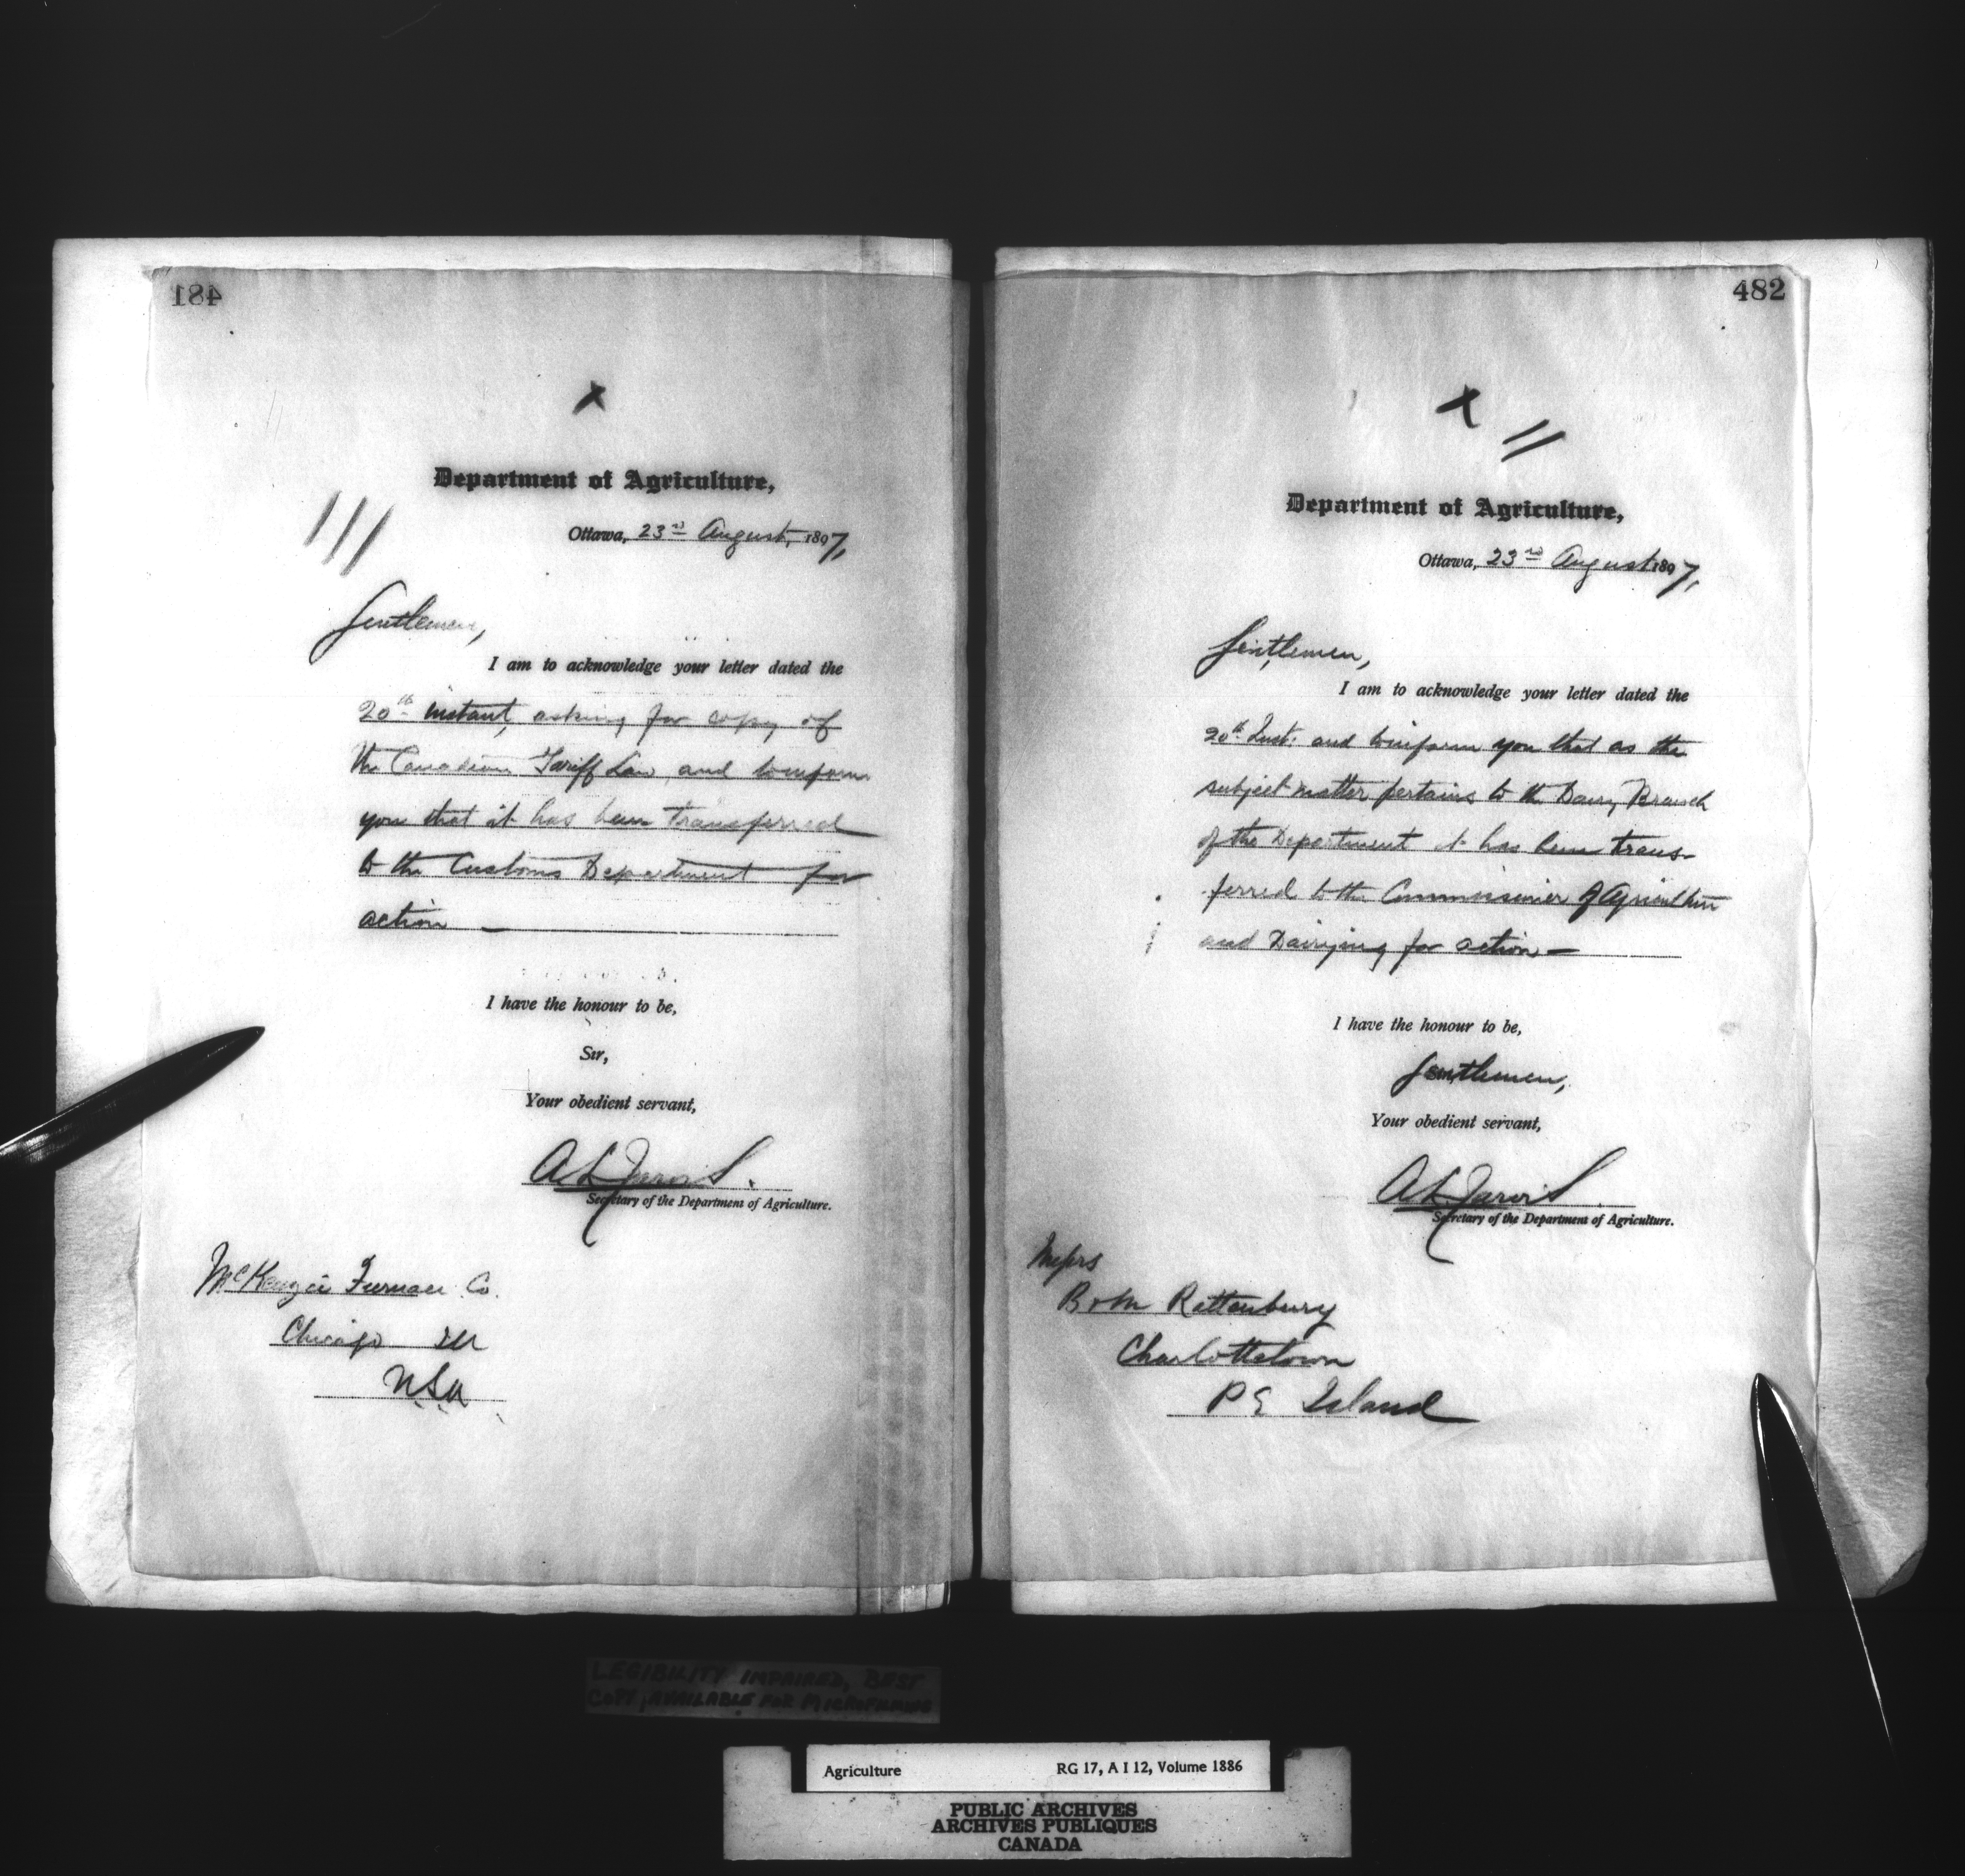 481
x
Department of Agriculture,
Ottawa, 23rd August, 1897,
Gentlemen,
I am to acknowledge your letter dated the
20th instant, asking for copy of
the Canadian Tariff Law and to inform
you that it has been transferred
to the Customs Department for
action
I have the honour to be,
Sir,
Your obedient servant,
A L Jarvis.
Secretary of the Department of Agriculture.
McKenzie Furnace Co.
Chicago Ill
USA
482
x
Department of Agriculture,
Ottawa, 23rd August 1897,
Gentlemen,
I am to acknowledge your letter dated the
20th Inst. and to inform you that as the
subject matter pertains to the Dairy Branch
of the Department it has been trans-
ferred to the Commissioner of Agriculture
and Dairying for action—
I have the honour to be,
Gentlemen,
Your obedient servant,
A L Jarvis
Secretary of the Department of Agriculture.
Messrs
B & M Rattenbury
Charlottetown
P E Island
LEGIBILITY IMPAIRED, BEST
COPY AVAILABLE FOR MICROFILMING
Agriculture RG 17, A I 12, Volume 1886
PUBLIC ARCHIVES
ARCHIVES PUBLIQUES
CANADA